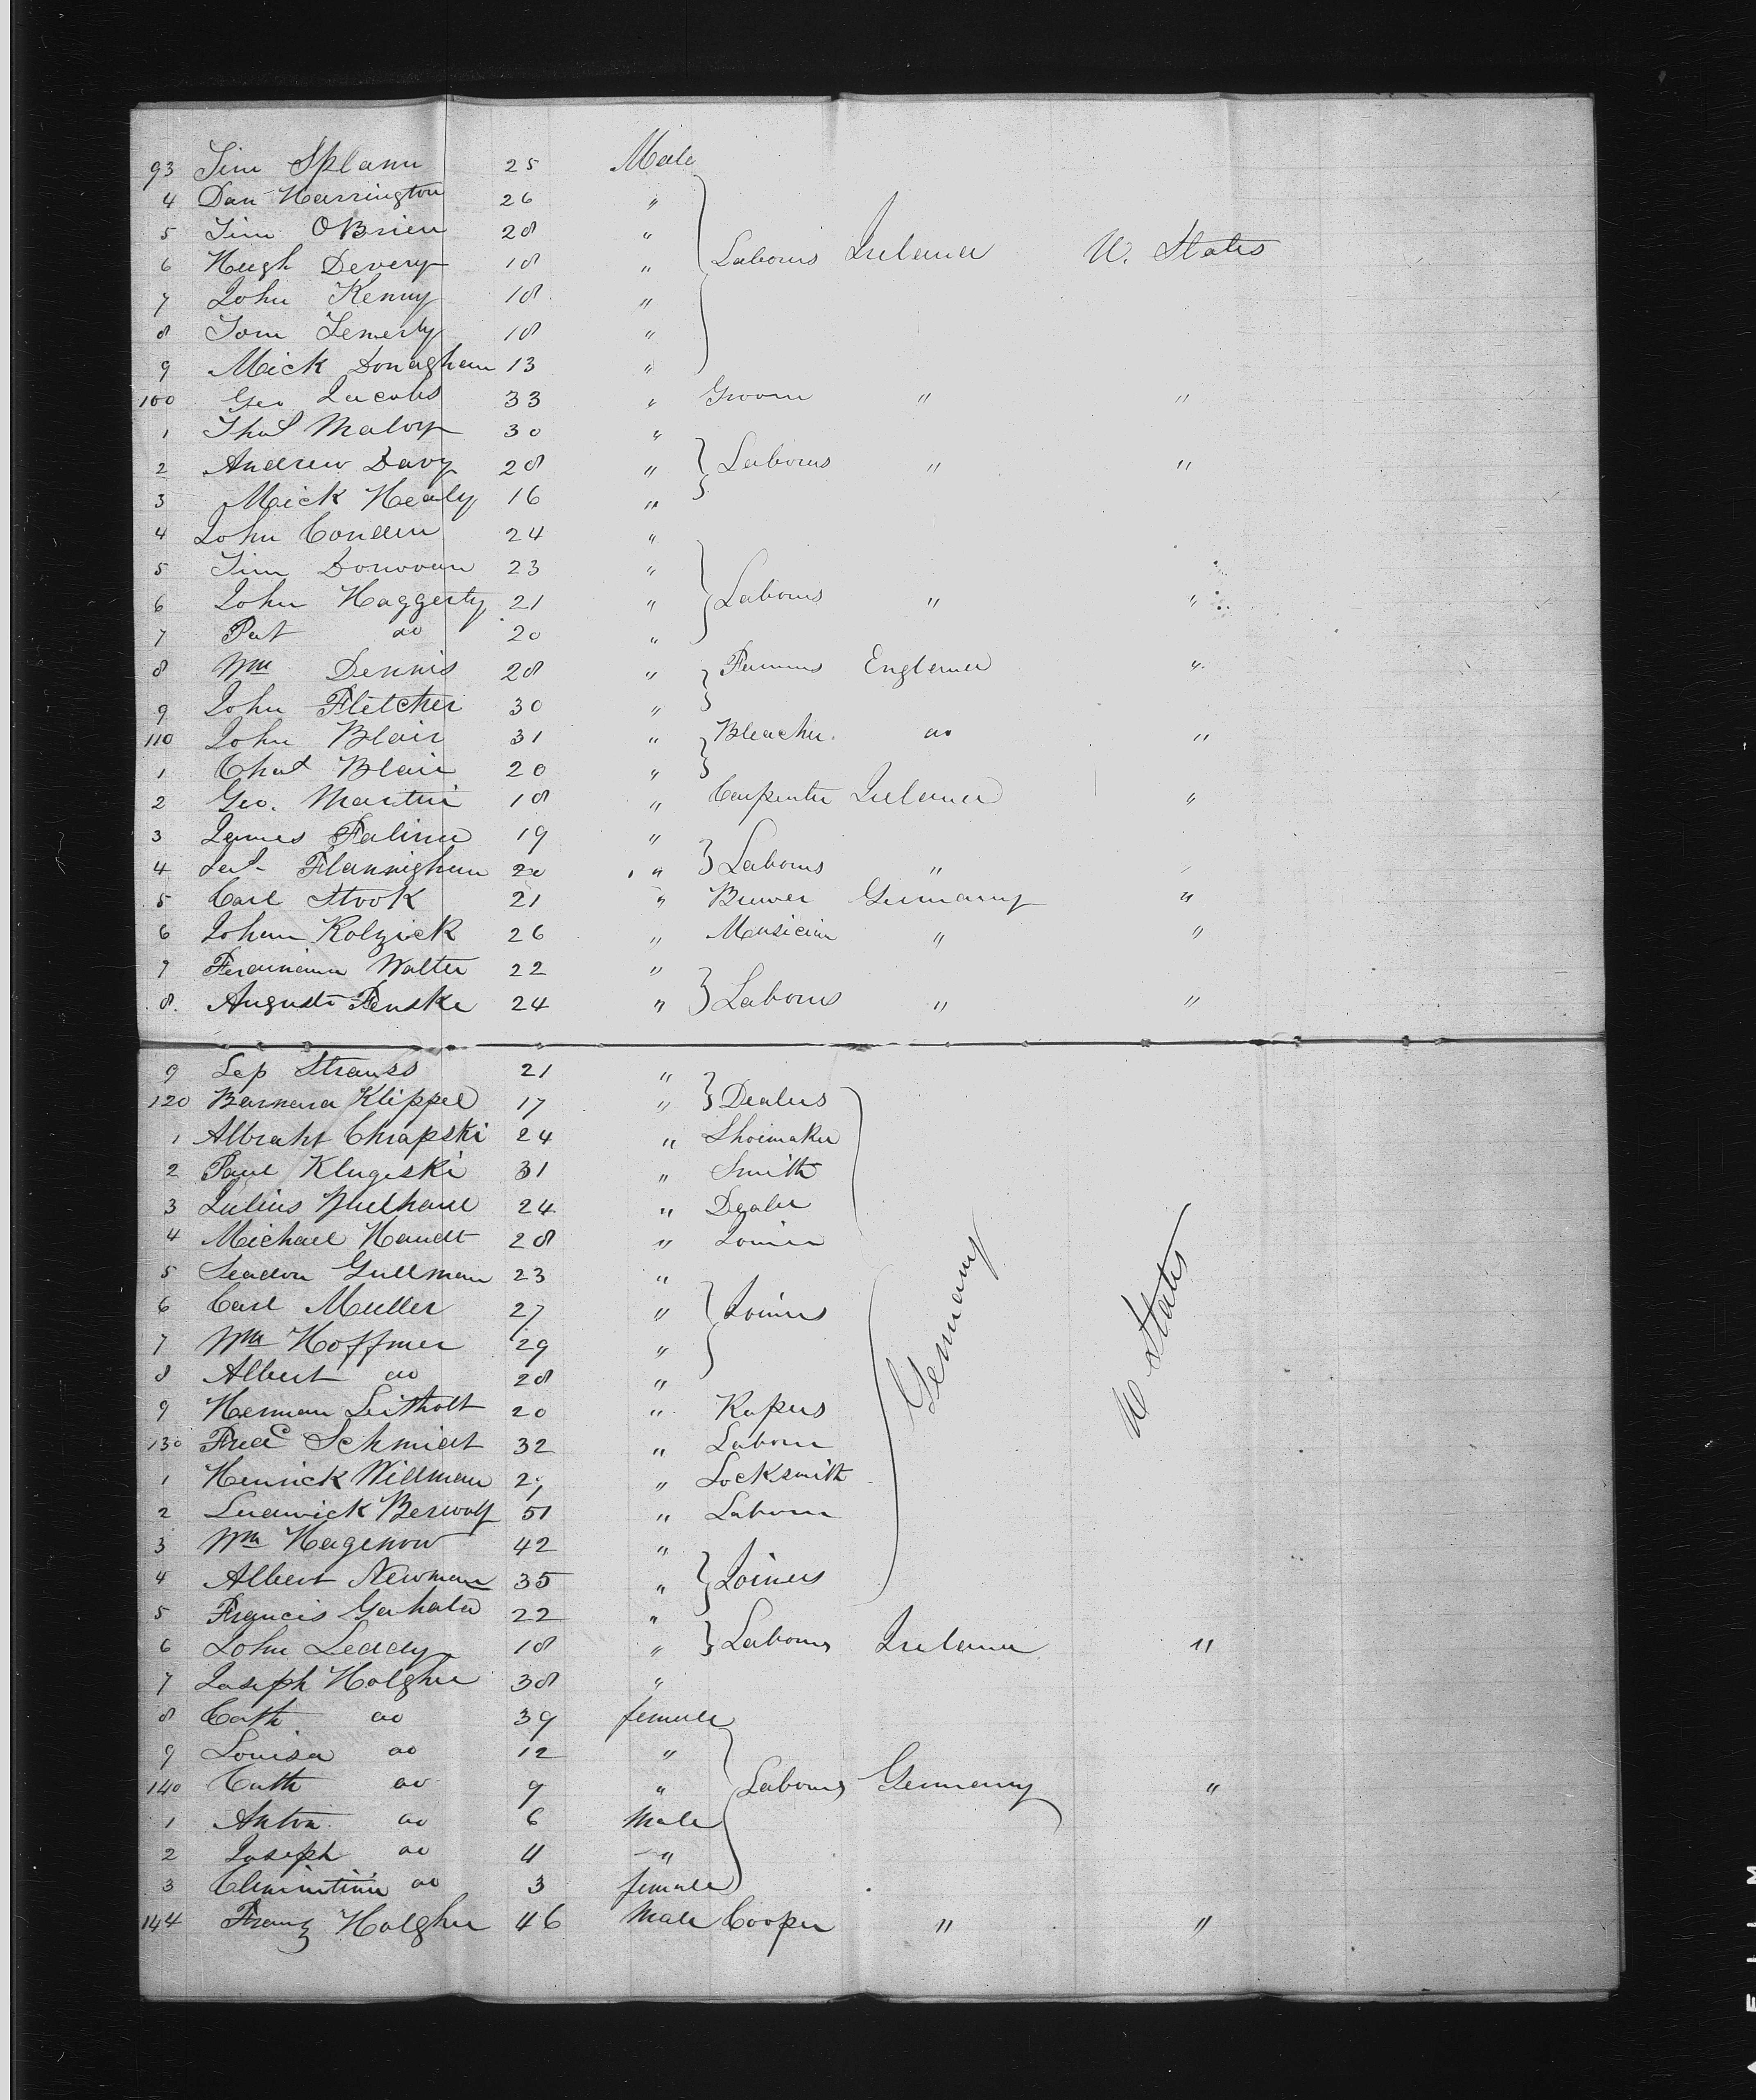 93 Tim Splann 25 Male
4 Dan Harrington 26 "
5 Tim OBrien 28 "
6 Hugh Devery 18 " Laborers Ireland U. States
7 John Kenny 18 "
8 Tom 18 "
9 Mick Donaghan 13 "
100 Geo Jacobs 33 " Groom " "
1 Thos Maloy 30 "
2 Andrew Davy 28 " Laborers " "
3 Mick Healy 16 "
4 John Conden 24 "
5 Tim Donovan 23 "
6 John Haggerty 21 " Laborers " "
7 Pat do 20 "
8 Wm Dennis 28 " Farmers England "
9 John Fletcher 30 "
110 John Blair 31 " Bleacher do "
1 Chas Blair 20 "
2 Geo. Martin 18 " Carpenter Ireland "
3 James 19 "
4 Jas Flannighan 20 " Laborers " "
5 Carl Stook 21 " Brewer Germany "
6 Johann Kolzick 26 " Musician " "
7 Ferdinand Walter 22 "
8. August Fenske 24 " Laborers " "
9 Lep Strauss 21 "
120 Klippel 17 " Dealers
1 Albraht Chrapski 24 " Shoemaker
2 Paul Klugeski 31 " Smith
3 Julius 24 " Dealer
4 Michael Handt 28 " Joiner
5 Gullman 23 "
6 Carl Muller 27 " Joiners Germany U States
7 Wm Hoffmer 29 "
8 Albert do 28 "
9 Herman Leitholt 20 "
130 Fred Schmidt 32 " Laborer
1 Henrick Willman " Locksmith
2 Ludwick Berwolf 51 " Laborer
3 Wm Hagenow 42 "
4 Albert Newman 35 " Joiners
5 Francis 22 "
6 John Leddy 18 " Laborers Ireland "
7 Joseph Holgher 38 "
8 Cath do 39 female
9 Louisa do 12 "
140 Cath do 9 " Laborers Germany "
1 Anton do 6 Male
2 Joseph do 4 "
3 do 3 female
144 Franz Holgher 46 Male Cooper " "